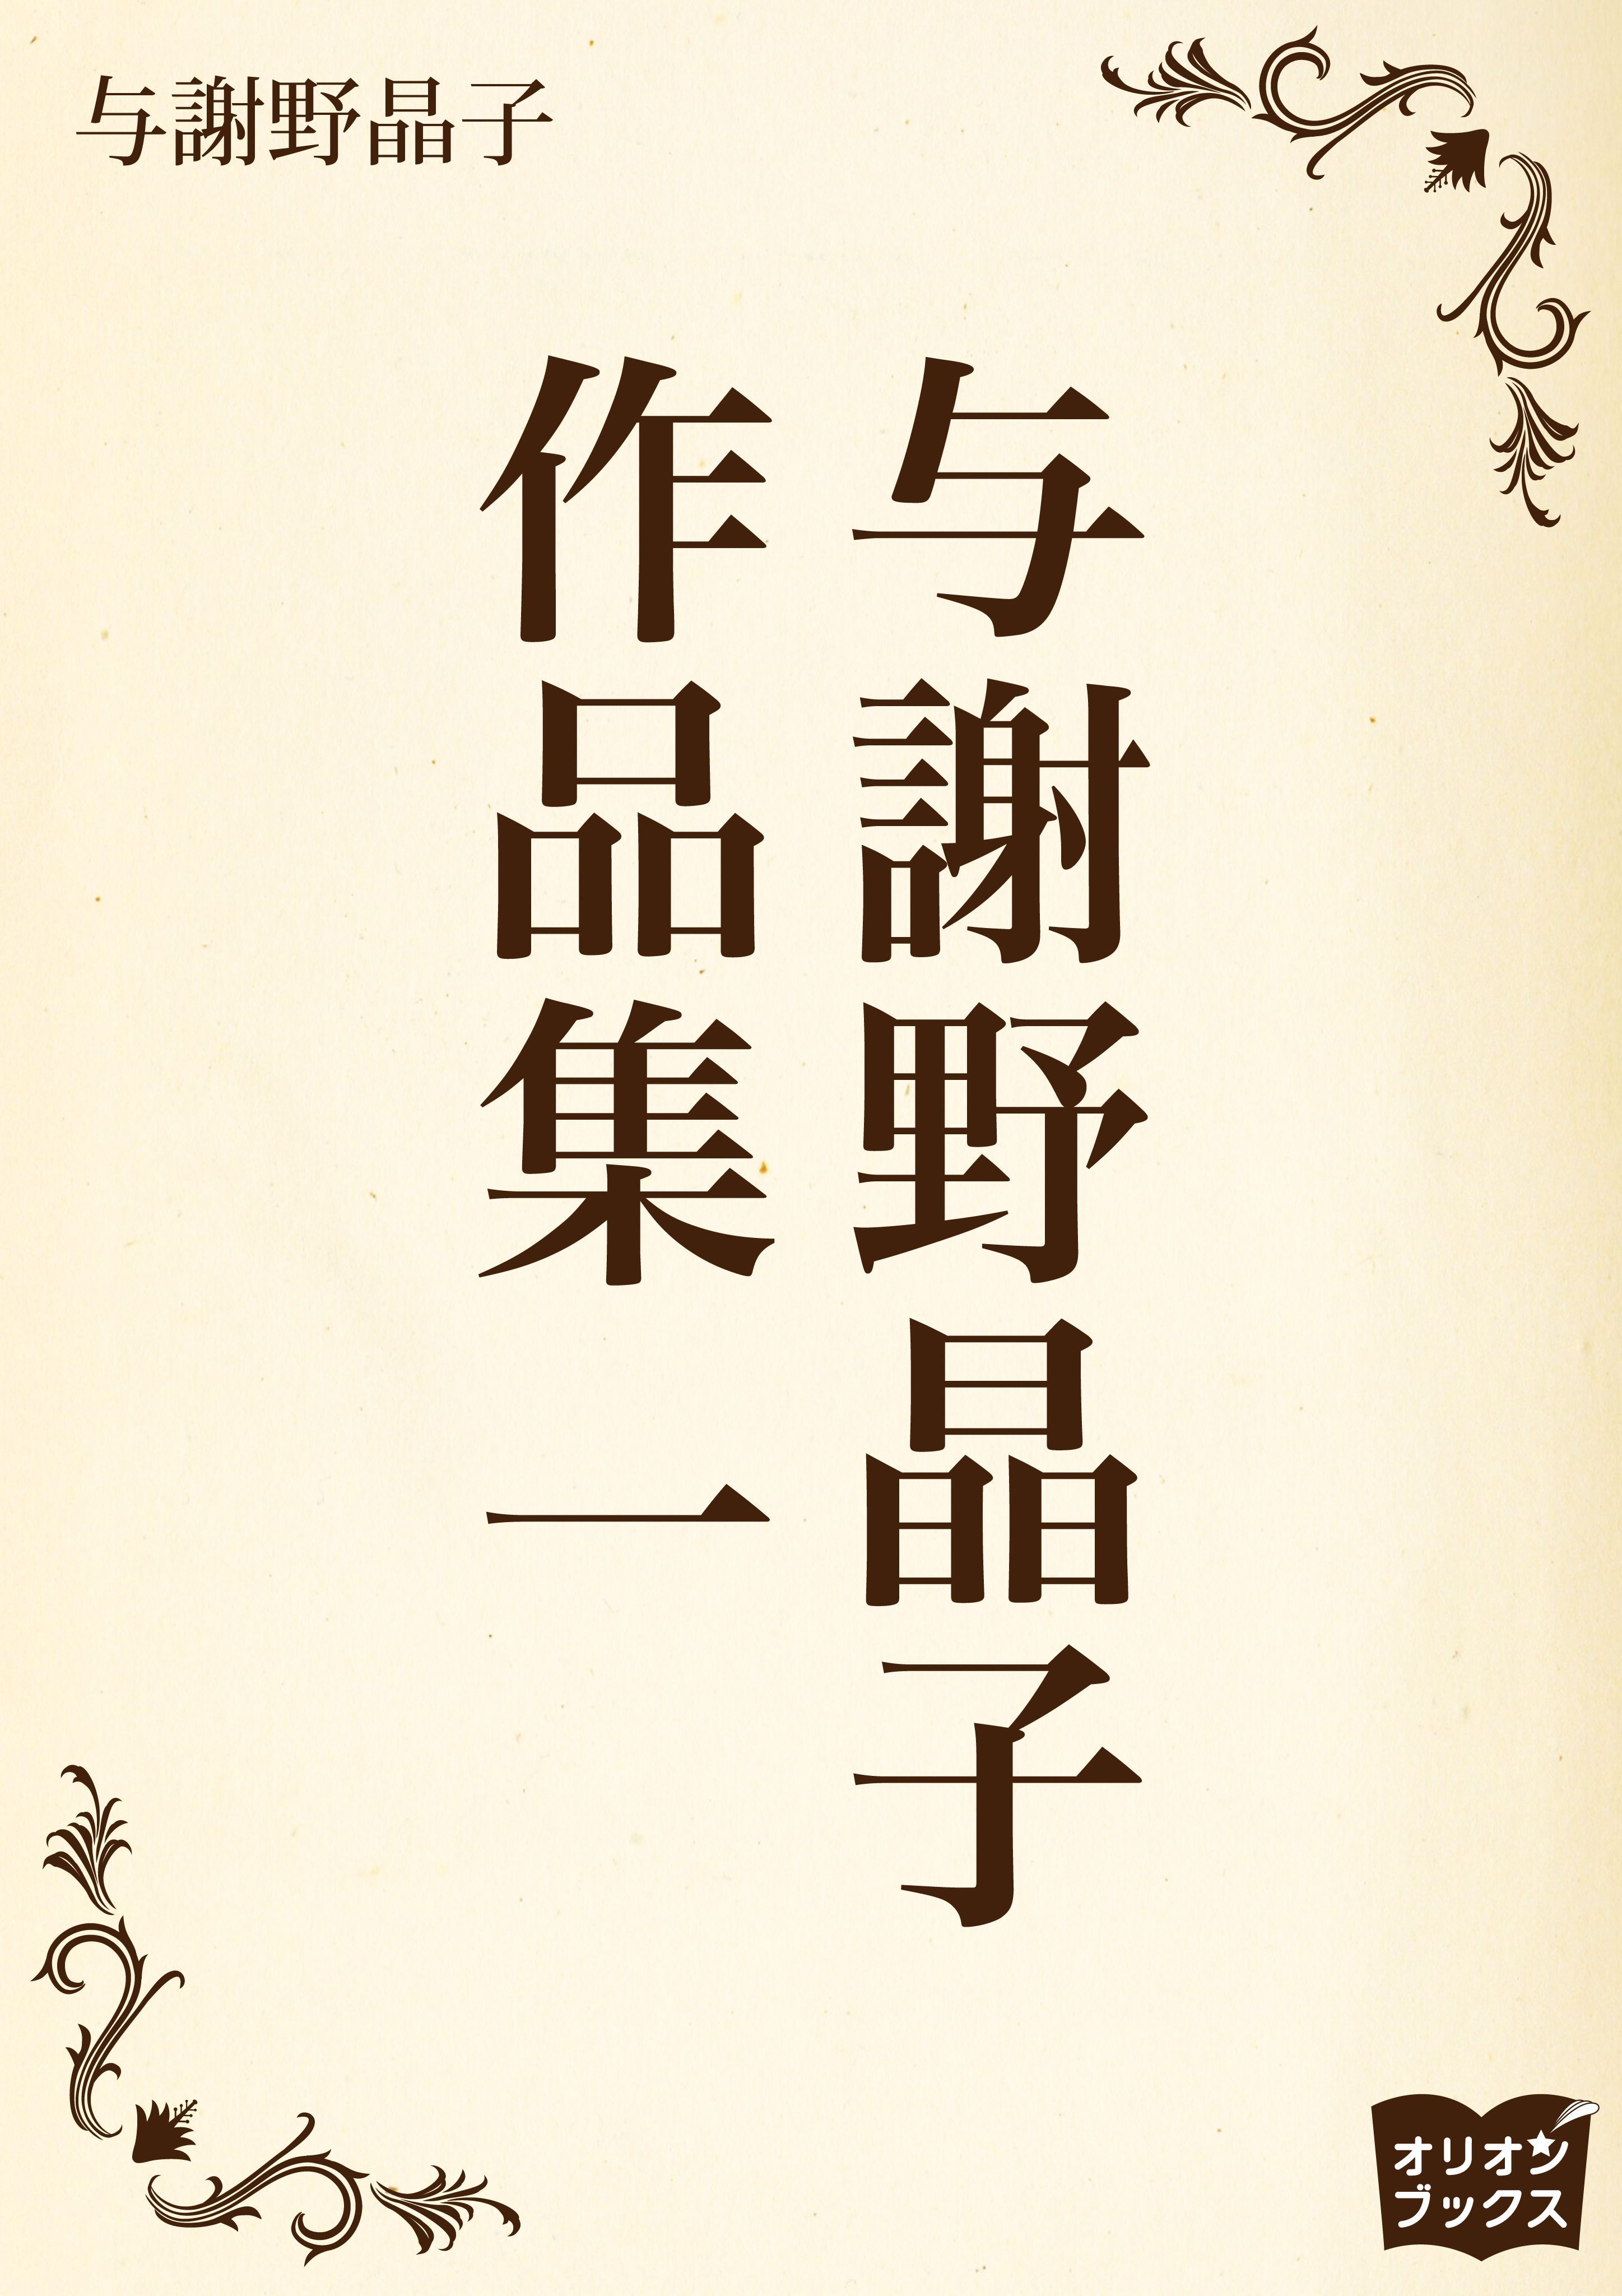 与謝野晶子
与謝野晶子
作品集一
オリオン
ブックス